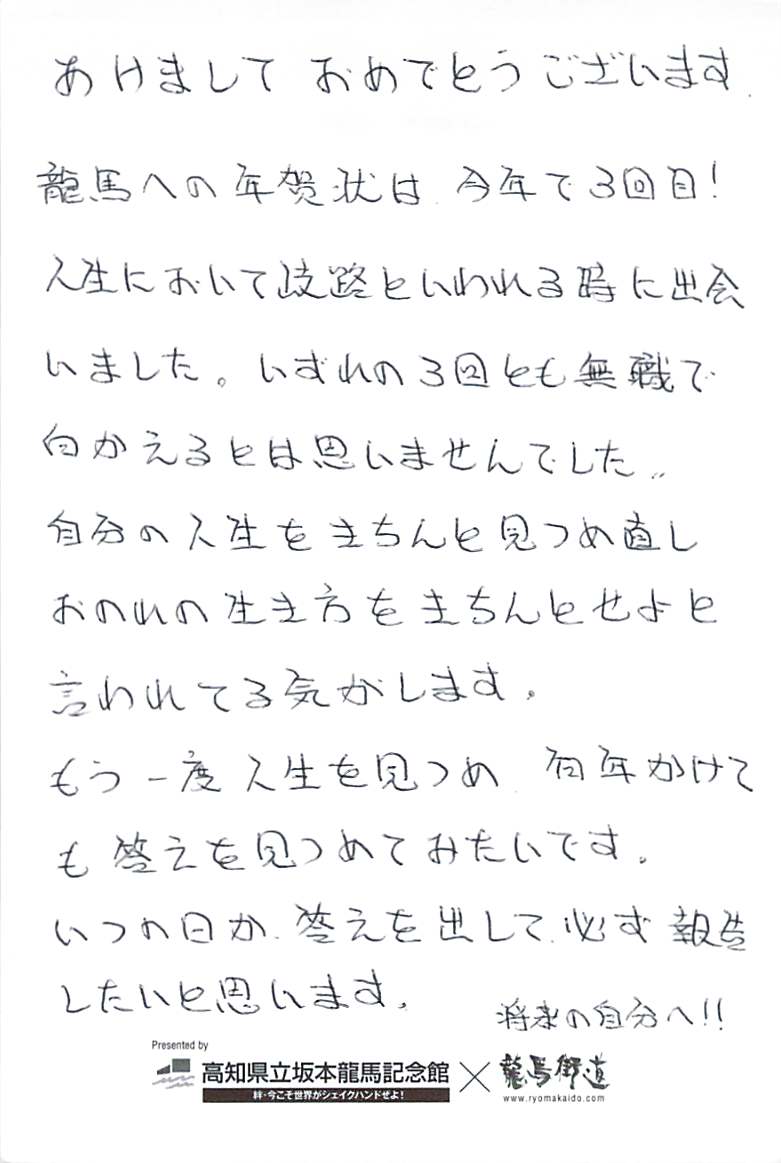 あけまして おめでとうございます.
龍馬への年賀状は 今年で3回目!
人生において岐路といわれる時に出会
いました。いずれの3回とも無職で
向かえるとは思いませんでした..
自分の人生をきちんと見つめ直し
おのれの生き方をきちんとせよと
言われてる気がします。
もう一度人生を見つめ 何年かけて
も 答えを見つめてみたいです。
いつの日か、答えを出して、必ず報告
したいと思います。
将来の自分へ!!
Presented by
高知県立坂本龍馬記念館×龍馬街道
絆・今こそ世界がシェイクハンドせよ!
www.ryomakaido.com